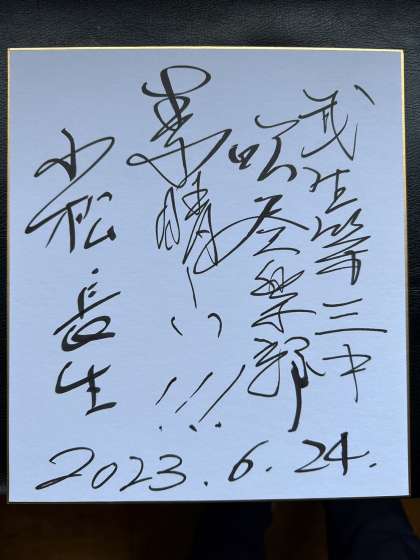 武生第三中
吹奏楽部
素晴しい!!!
小松長生
2023.6.24.